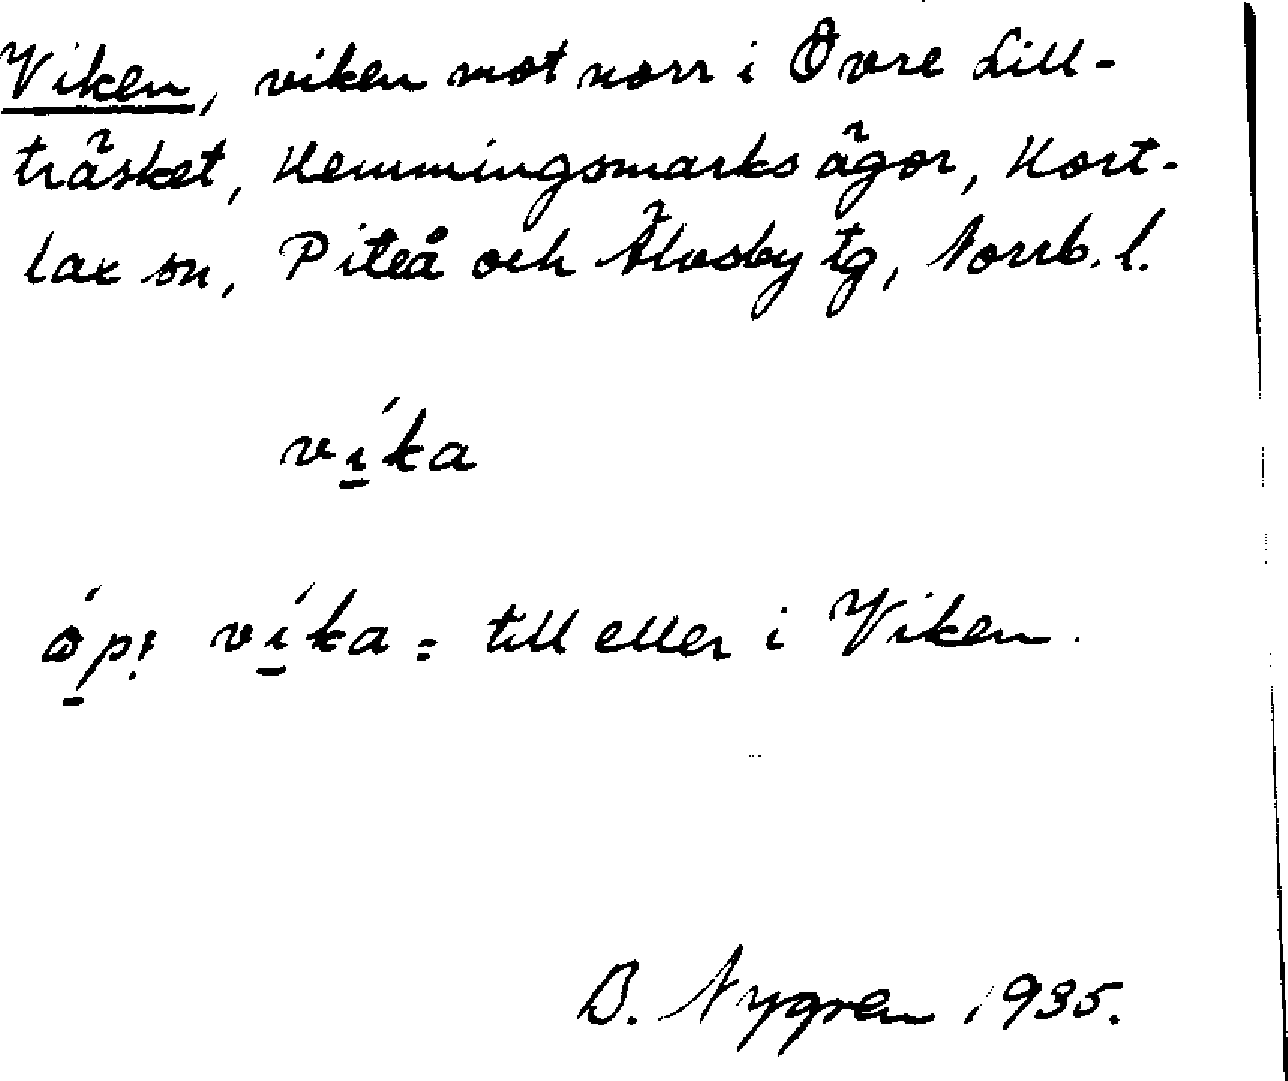 Viken, viken mot norr i Övre Lill-
träsket, Hemmingsmarks ägor, Hort-
lax sn, Piteå och Älvsby tg, Norrb. l.
vi̱´ka
vi̱´ka = till eller i Viken.
B. Nygren 1935.